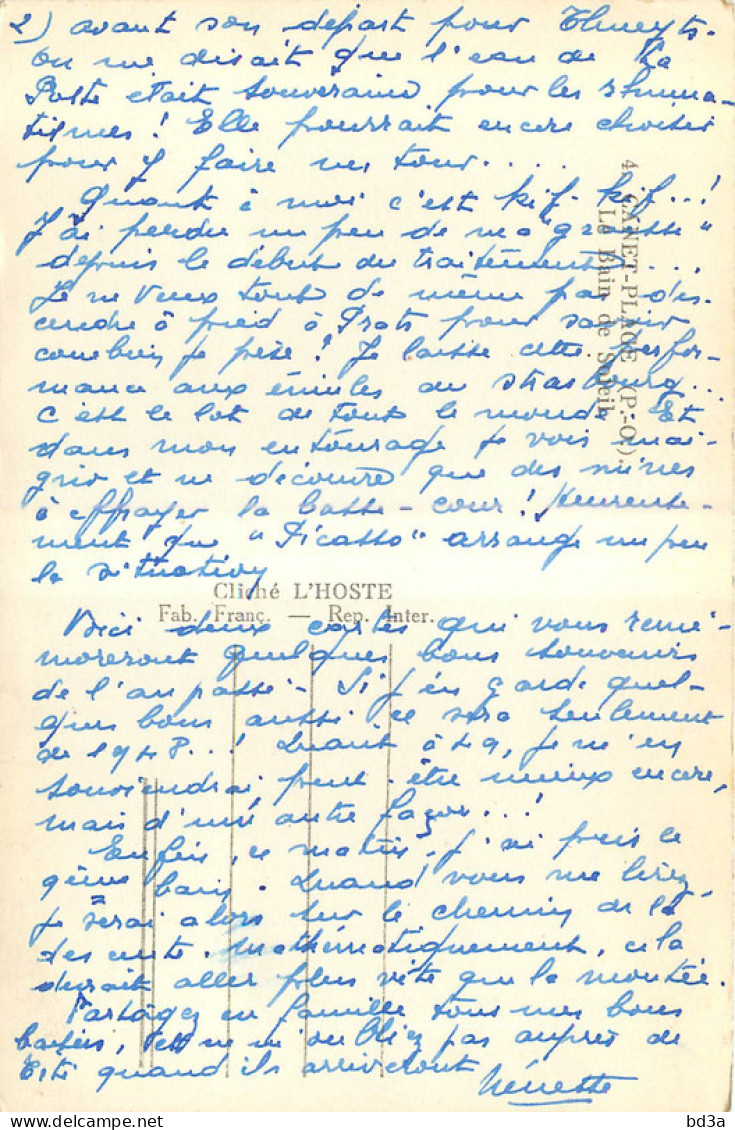 2) avant son départ pour Thueyts.
On me disait que l'eau de La
Poste était souveraine pour les rhuma-
tismes ! Elle pourrait encore choisir
pour y faire un tour....
Quant à moi c'est kif-kif...!
J'ai perdu un peu de ma "graisse"
depuis le début du traitement....
Je ne veux tout de même pas des-
cendre à pied à Prats pour savoir
combien je pèse ! Je laisse cette perfor-
mance aux émules de Strasbourg...
C'est le lot de tout le monde. Et
dans mon entourage je vois mai-
grir et ne découvre que des mines
à effrayer la basse-cour ! Heureuse-
ment que "Picasso" arrange un peu
la situation
Voici deux cartes qui vous remé-
moreront quelques bons souvenirs
de l'an passé - Si j'en garde quel-
ques bons aussi ce sera seulement
de 1948...! Quant à 49, je m'en
souviendrai peut-être mieux encore,
mais d'une autre façon...!
Enfin, ce matin, j'ai pris le
9ème bain. Quand vous me lirez
je serai alors sur le chemin de la
descente. Mathématiquement, cela
devrait aller plus vite que la montée.
Partagez en famille tous mes bons
baisers, et ne m'oubliez pas auprès de
quand ils arriveront
Nénette
4. CANET-PLAGE (P.-O.).
Le Bain de Soleil
Cliché L'HOSTE
Fab. Franç. — Rep. Inter.
bd3a